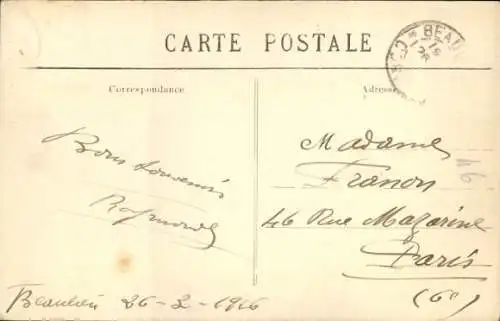 CARTE POSTALE
BEAU
Correspondance
Adresse
Bons souvenirs
Raymonde
Madame
Franon
46 Rue Mazarine
Paris
(6e)
Beaulieu 26-2-1916